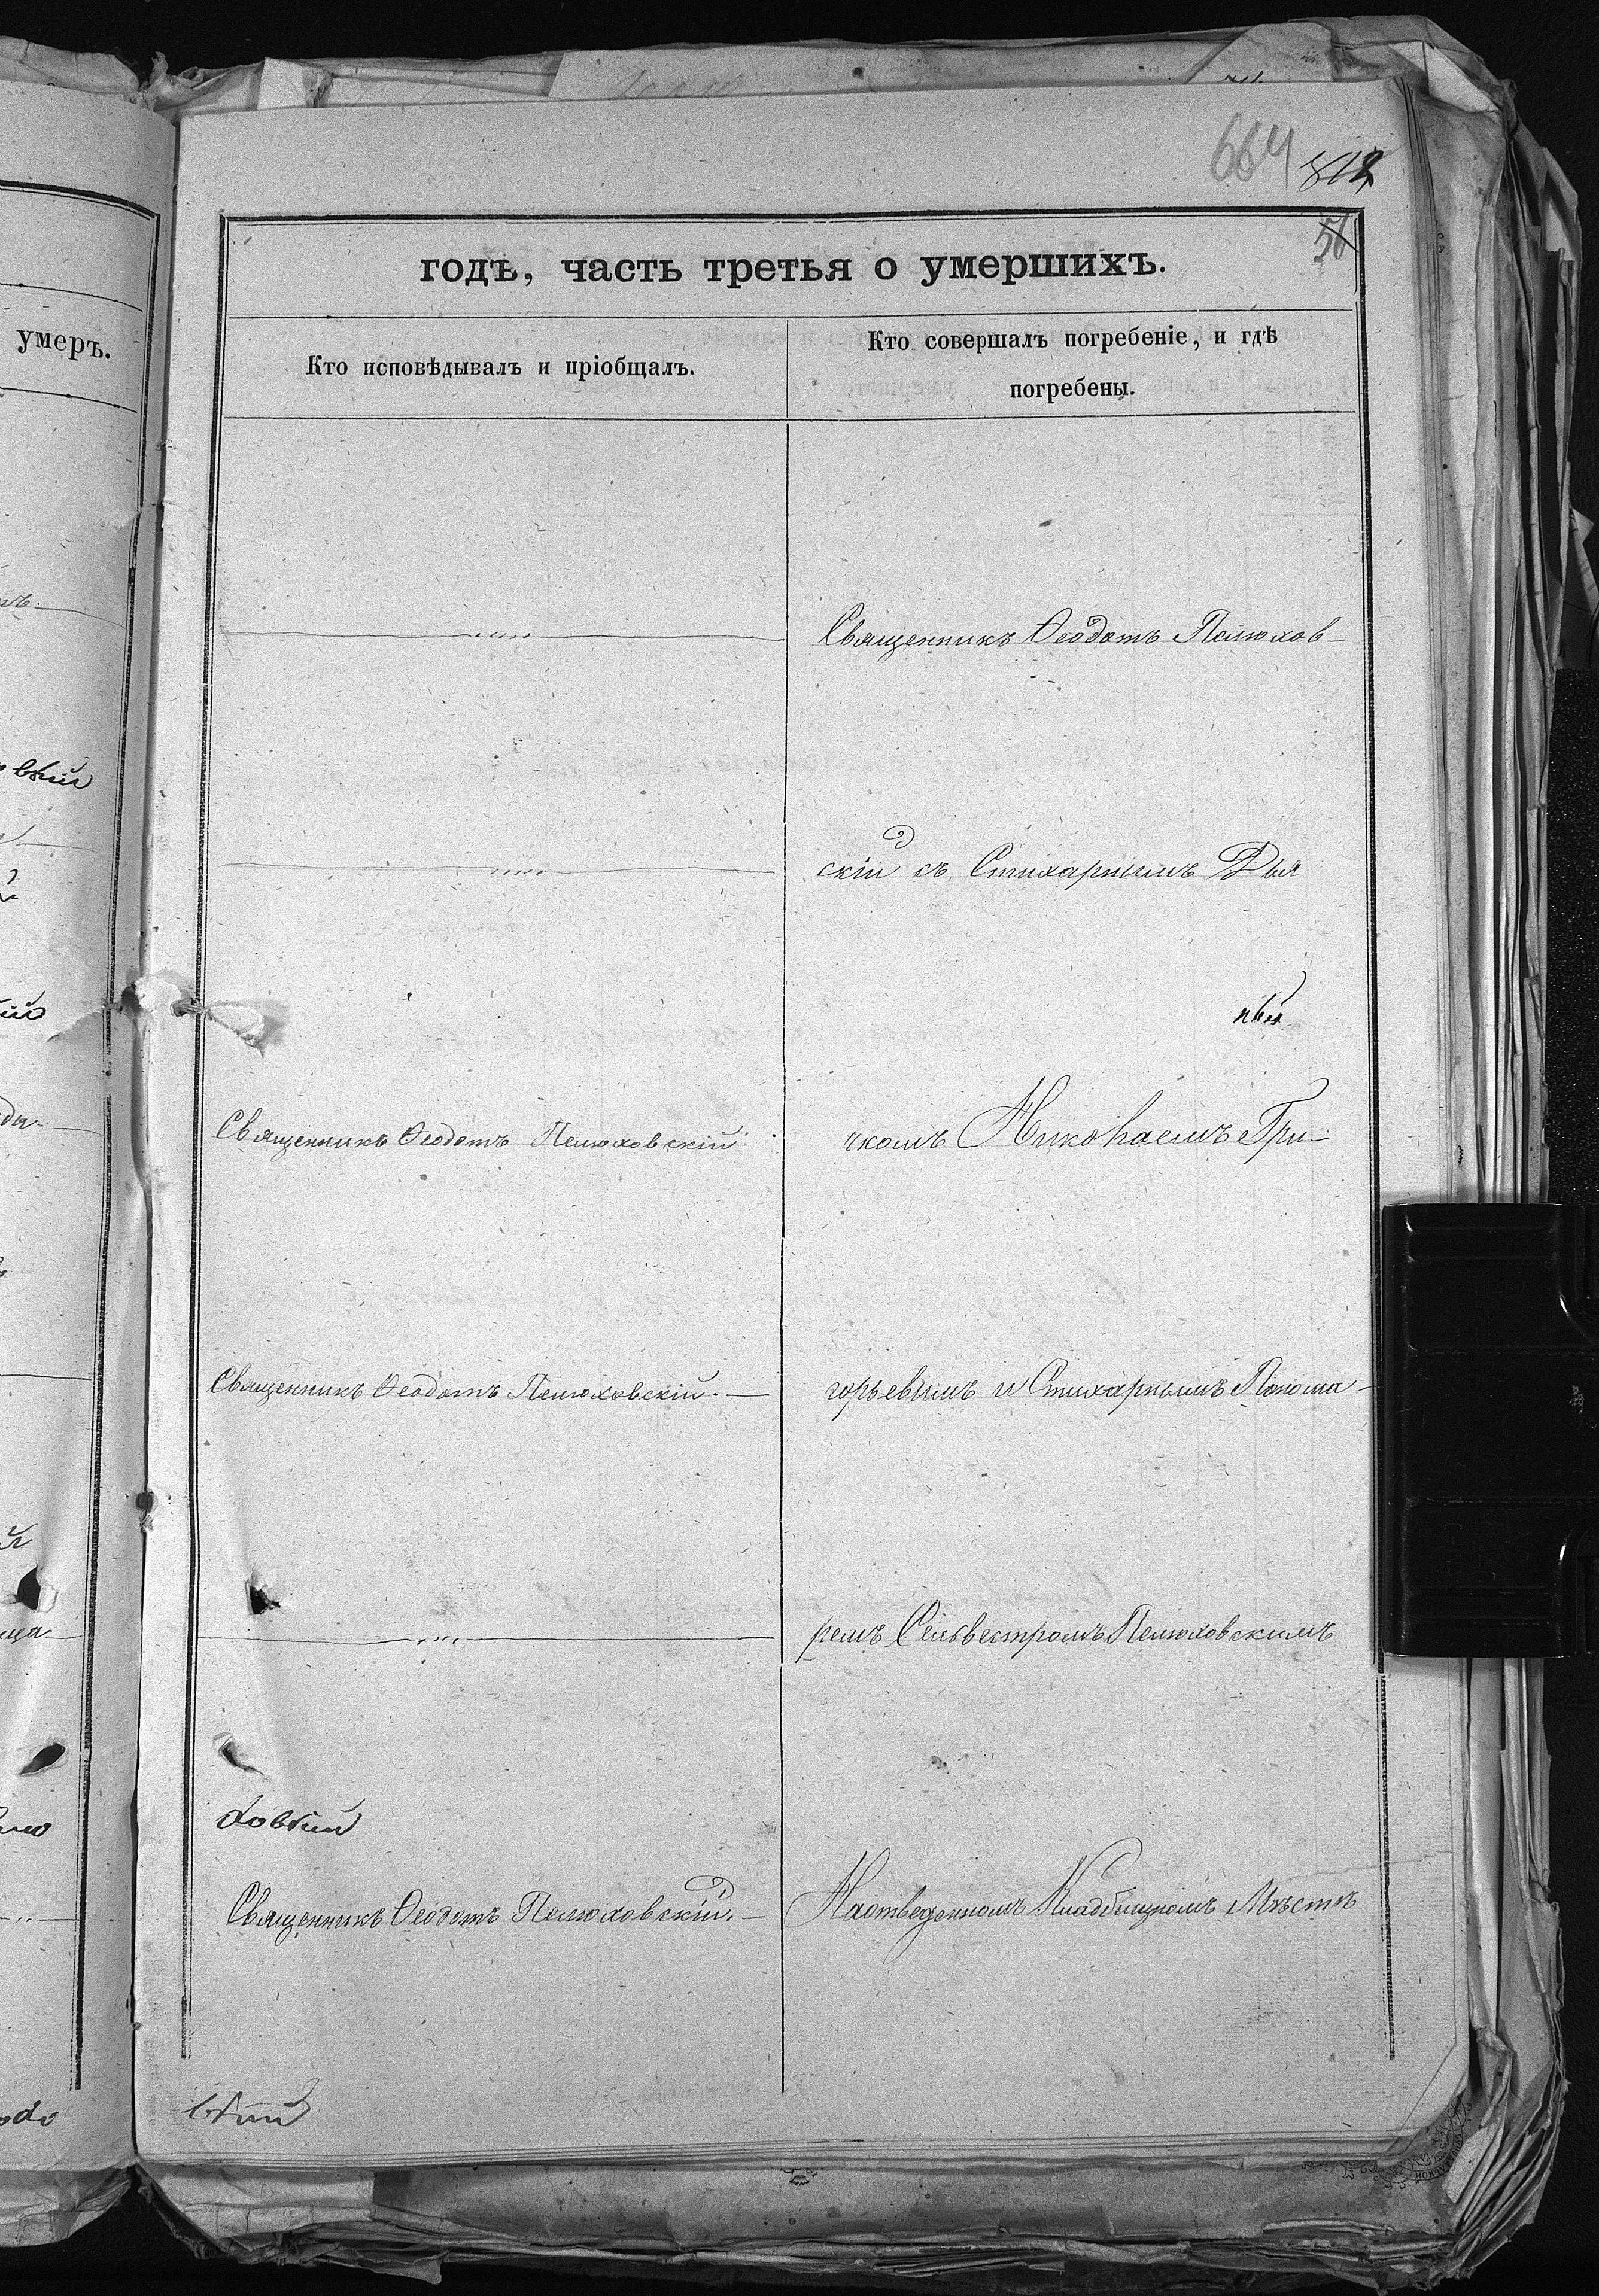 664
812
56
годѣ, часть третья о умершихъ.
умеръ.
Кто исповѣдывалъ и пріобщалъ.
Кто совершалъ погребеніе, и гдѣ
погребены.
Священникъ Ѳеодотъ Пелюхов-
скій съ Стихарнымъ Дья
Священникъ Ѳеодотъ Пелюховскій
чкомъ Николаемъ Гри-
Священникъ Ѳеодотъ Пелюховскій.
горьевымъ и Стихарнымъ Понома-
ремъ Сельвестромъ Пелюховскимъ
Священникъ Ѳеодотъ Пелюховскій.
На отведенномъ Кладбищномъ Мѣстѣ